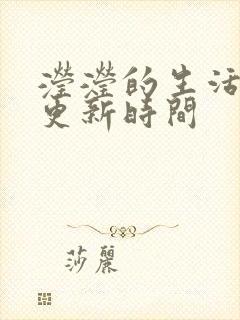 瀅瀅的生活
更新時間
莎麗